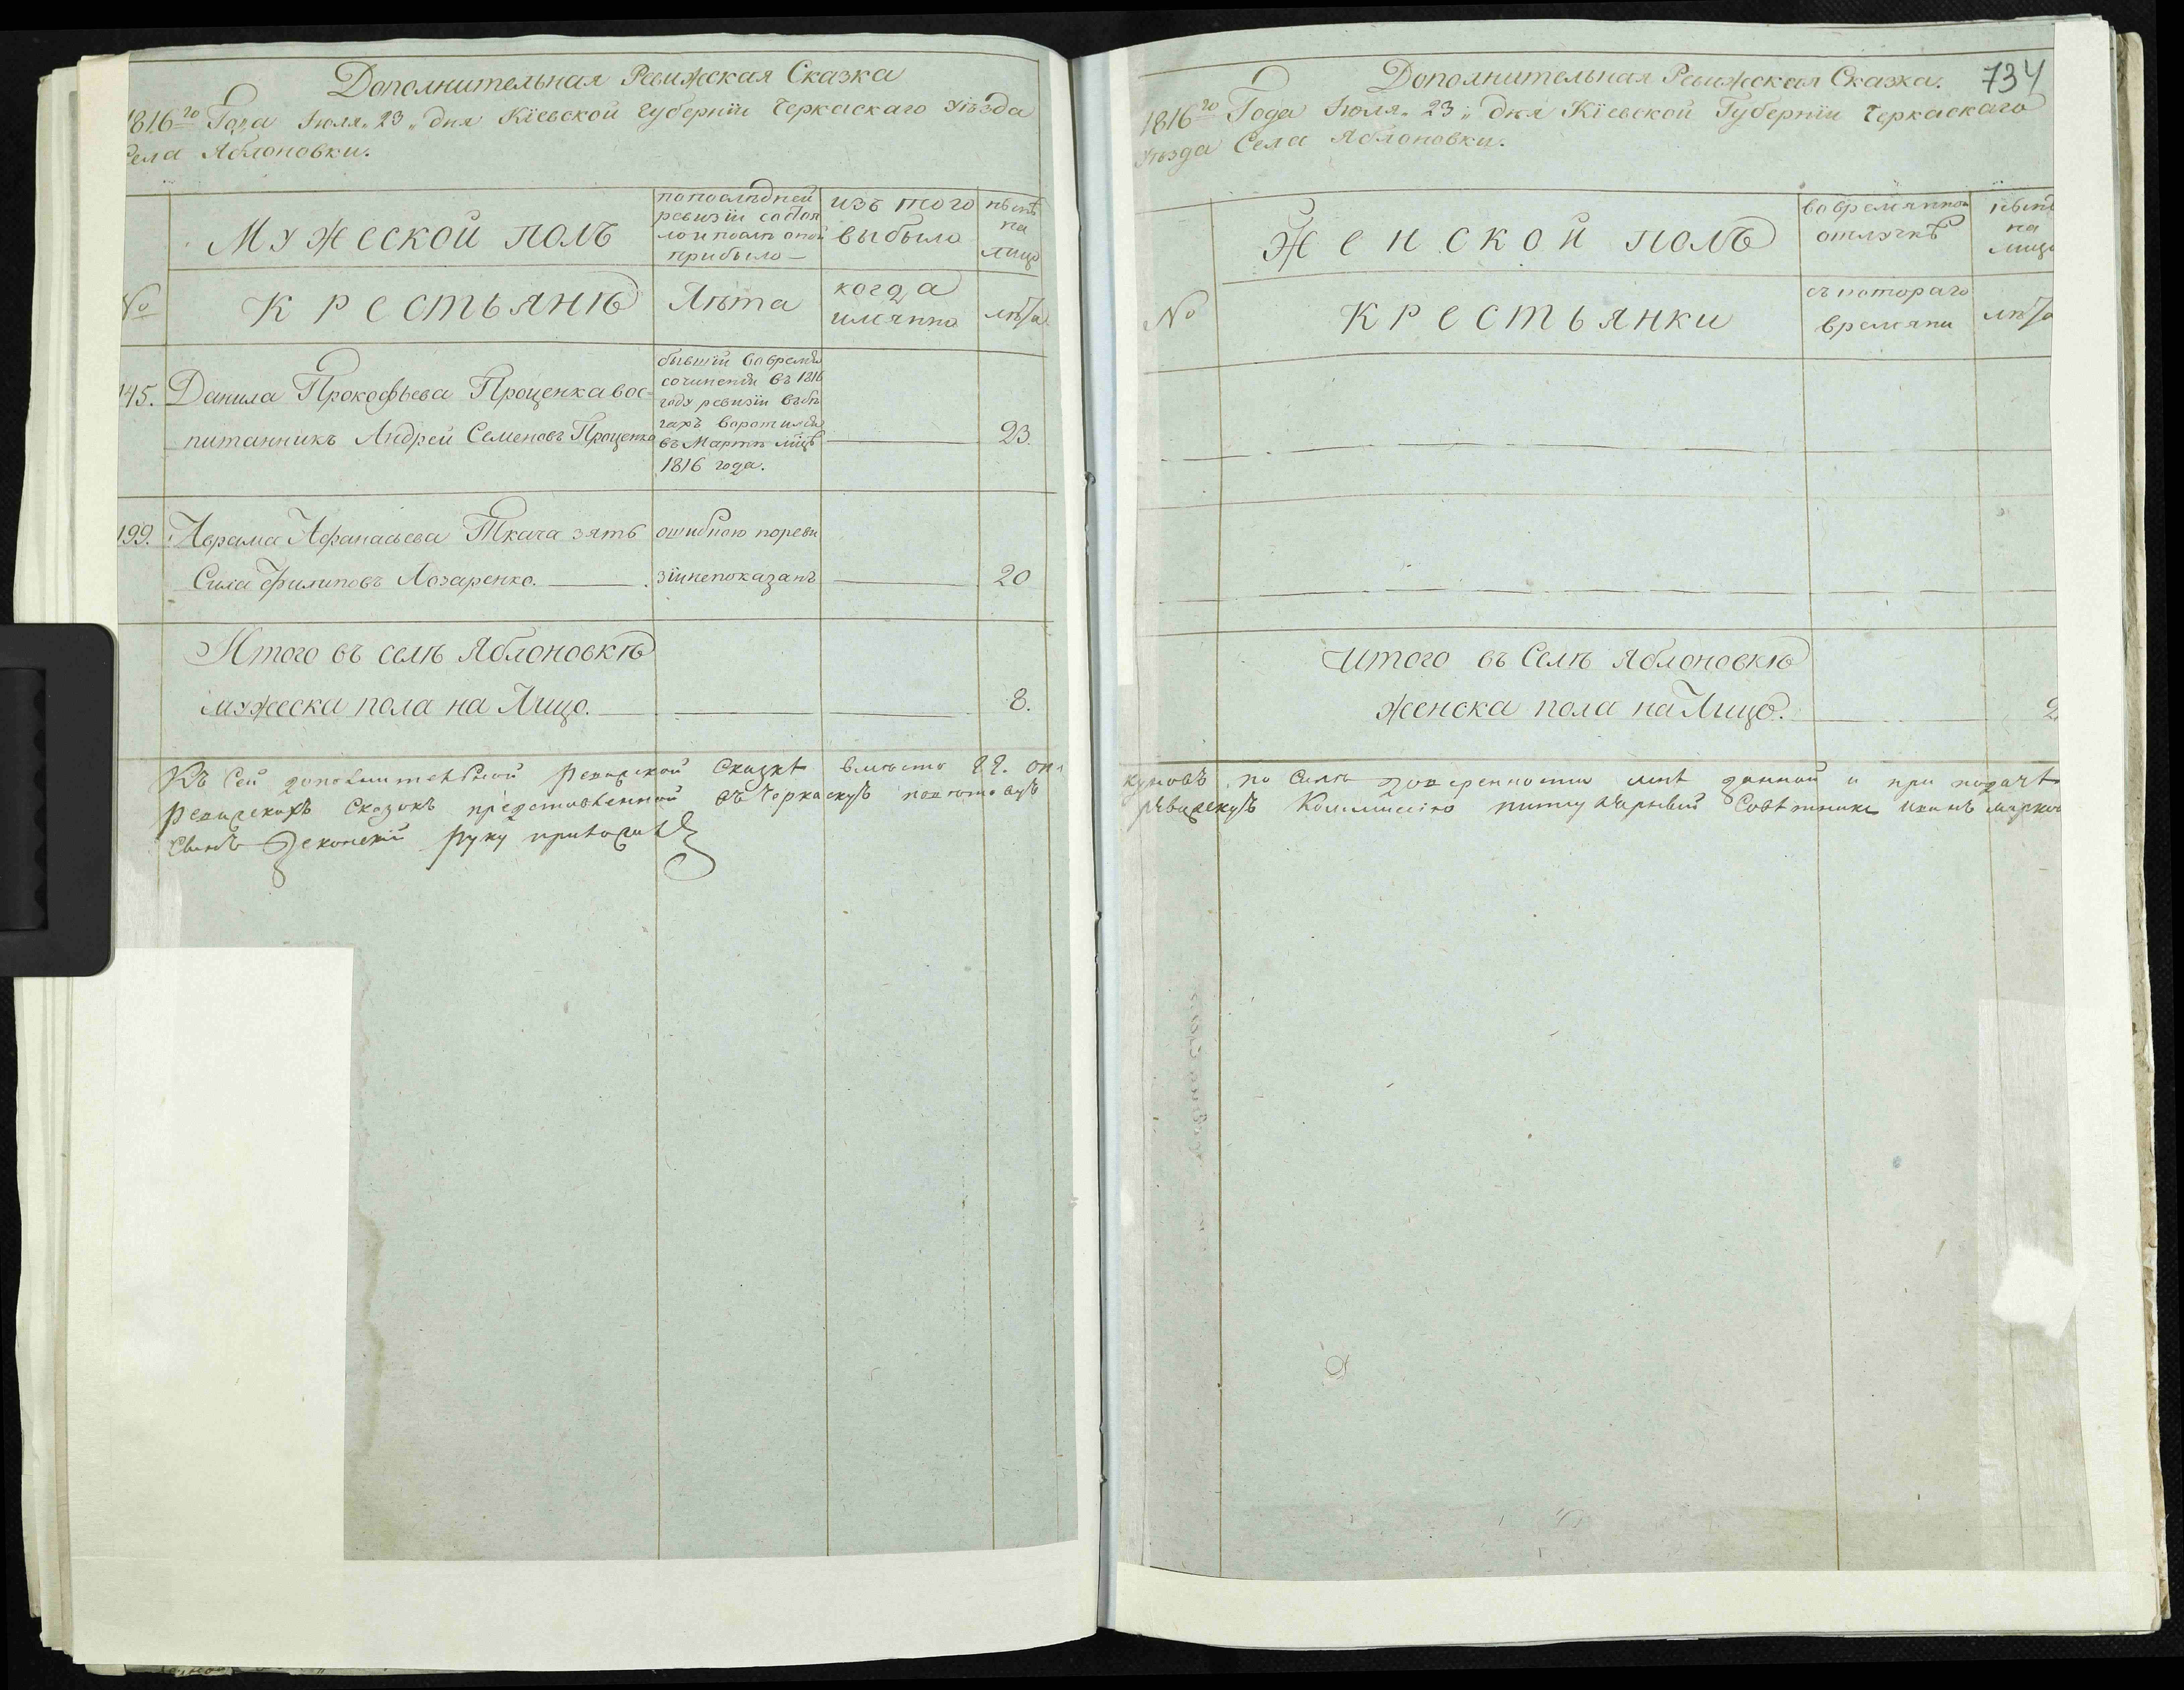 Дополнительная Ревижская Сказка
1816го Года Июля „23„ дня Кіевской Губерніи Черкаскаго Уѣзда
Села Яблоновки.
Мужеской полъ
по послѣдней
ревизіи состоя
ло и послѣ оной
прибыло
изъ того
выбыло
нынѣ
на
лицо
№
Крестьянѣ
Лѣта
когда
имянно
лѣта
145.
Данила Прокофьева Проценка вос-
питанникъ Андрей Семеновъ Проценко
бывшій вовремя
сочиненія въ 1816
году ревизіи въ бѣ
гахъ воротился
въ Мартѣ мцѣ
1816 года.
23.
199.
Аврама Афанасьева Ткача зять
Сила Филиповъ Лазаренко.
ошибкою пореви
зіи непоказанъ
20
Итого въ селѣ Яблоновкѣ
мужеска пола на Лицо.
8.
Къ Сей дополнительной ревизской Сказкѣ вмѣсто
ревизскихъ Сказокъ представленной въ Черкаскую повѣтовую
руку приложилъ
734
Дополнительная Ревижская Сказка.
1816го Года Июля „23„ дня Кіевской Губерніи Черкаскаго
Уѣзда Села Яблоновки.
Женской полъ
вовремянной
отлучкѣ
нынѣ
на
лицо
№
Крестьянки
съ котораго
времяни
лѣта
Итого въ Селѣ Яблоновкѣ
женска пола на Лицо.
2
по Силѣ довѣренности мнѣ данной и при подачѣ
Ревизскую Коммисію титулярный Совѣтникъ Иванъ